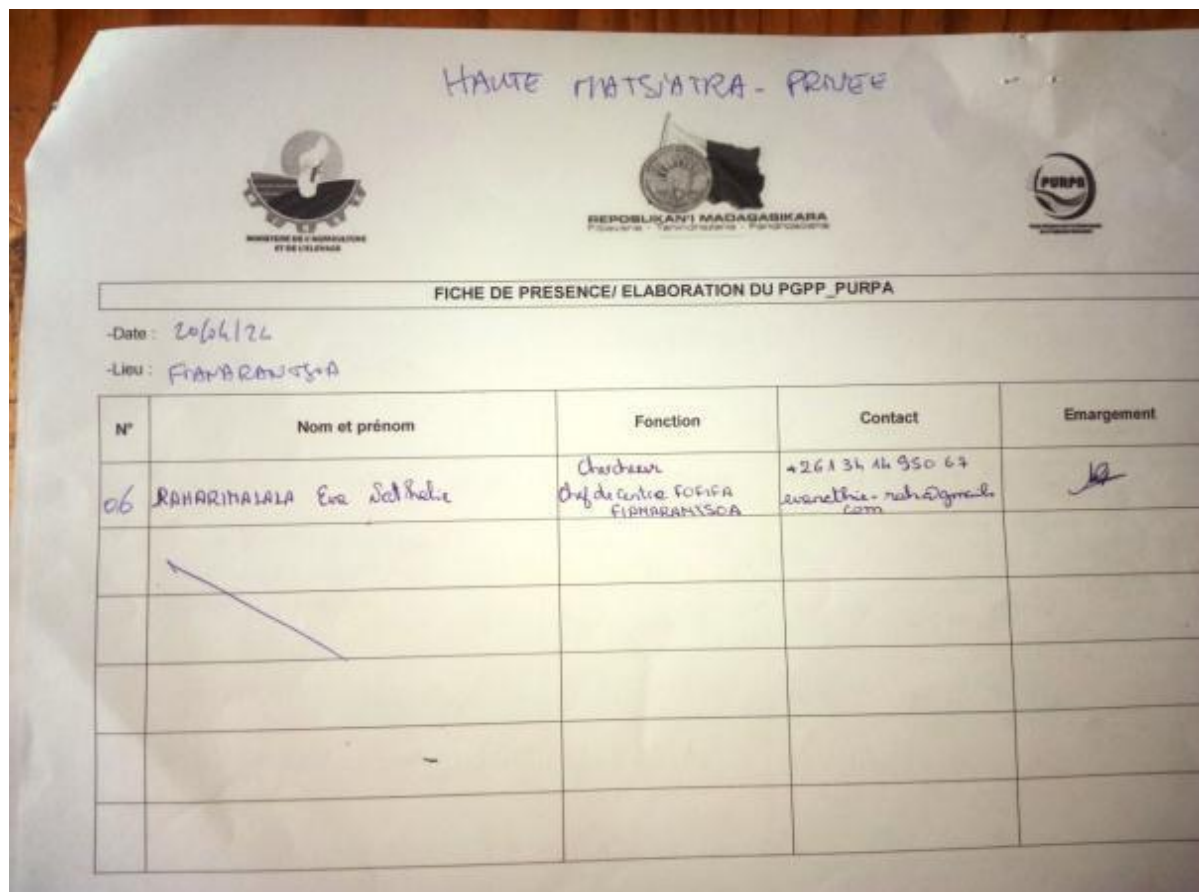 HAUTE MATSIATRA - PRIVEE
MINISTERE DE L'AGRICULTURE
ET DE L'ELEVAGE
REPOBLIKAN'I MADAGASIKARA
Fitiavana - Tanindrazana - Fandrosoana
PURPA
FICHE DE PRESENCE/ ELABORATION DU PGPP_PURPA
-Date : 20/04/22
-Lieu : FIANARANTSOA
N° Nom et prénom Fonction Contact Emargement
06 RAHARIMALALA Eva Nathalie Chercheur +261 34 14 950 67
Chef de Centre FOFIFA
FIANARANTSOA com